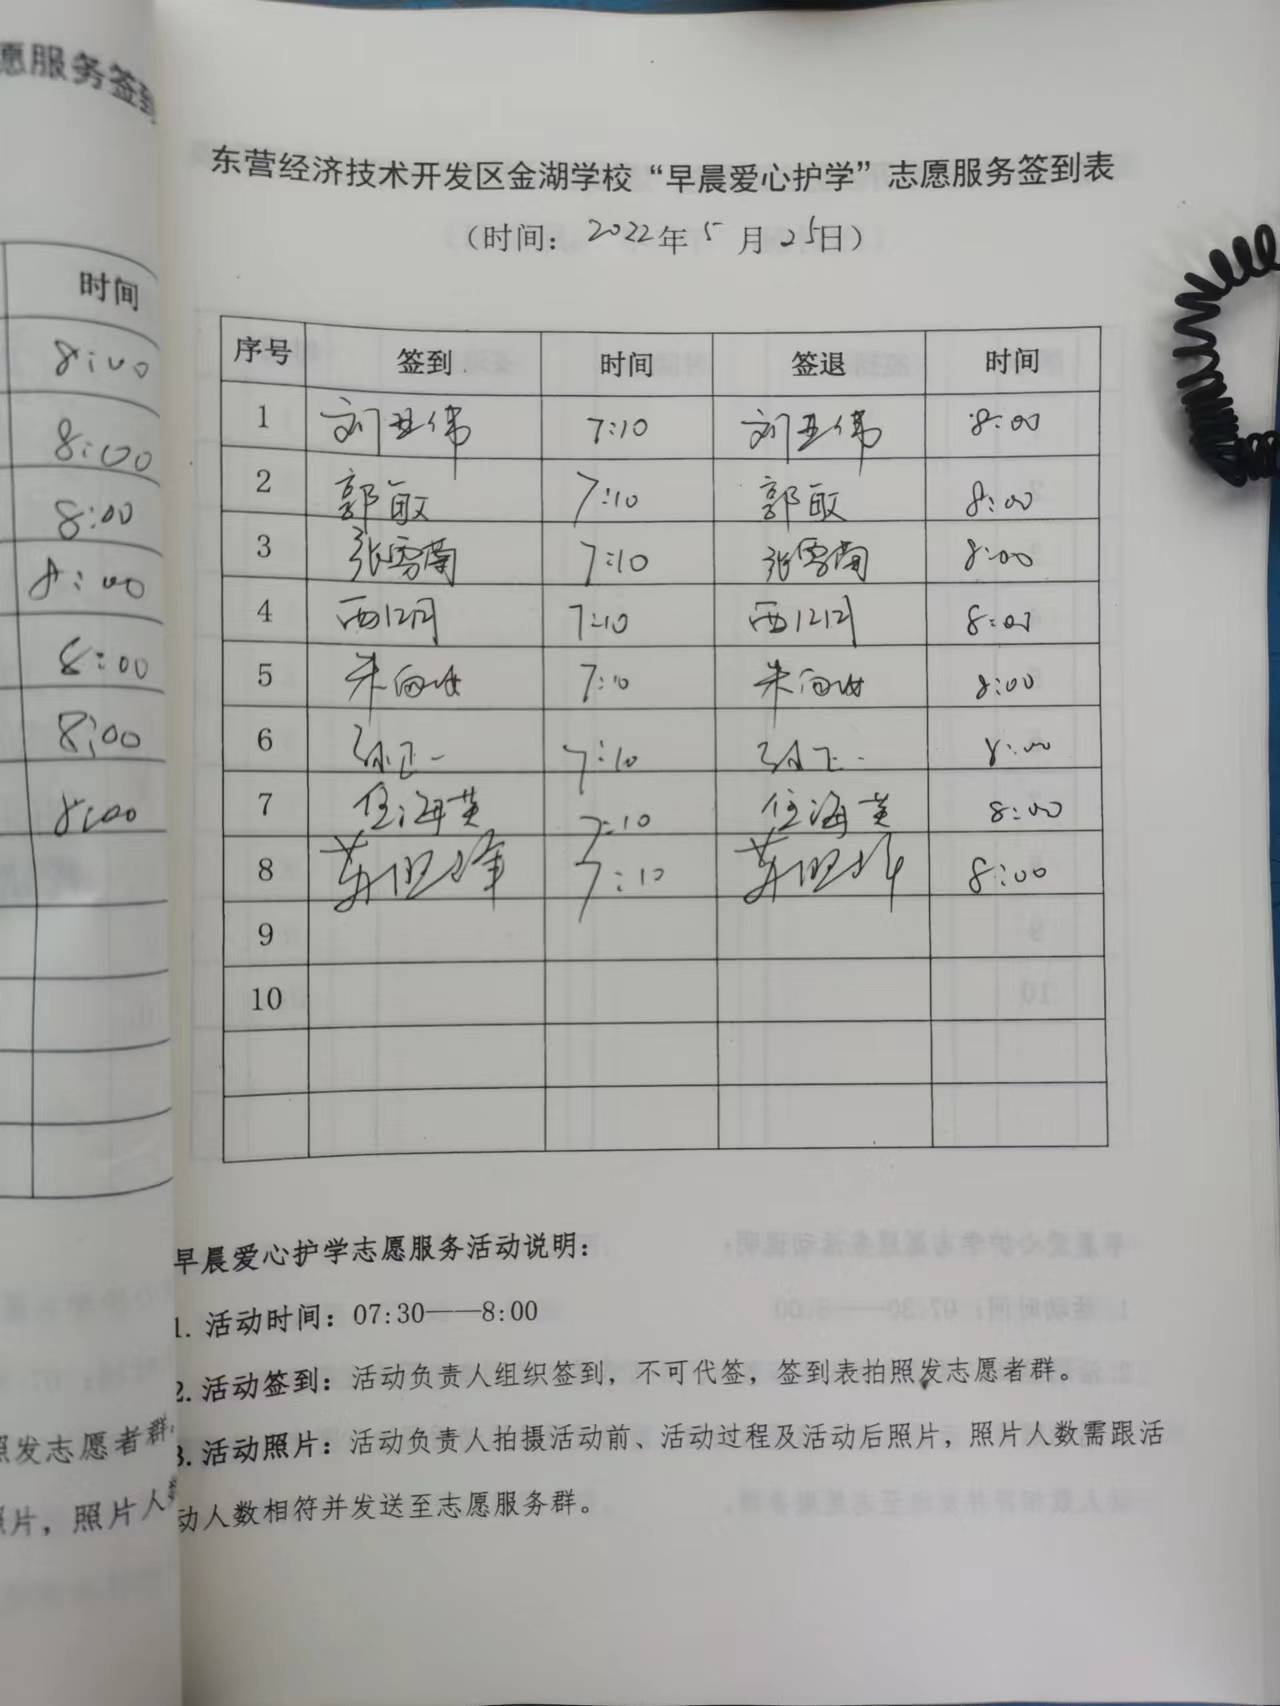 愿服务签到
时间
8:00
8:00
8:00
8:00
8:00
8:00
8:00
照发志愿者群
照片，照片人数
东营经济技术开发区金湖学校“早晨爱心护学”志愿服务签到表
（时间：2022年5月25日）
序号 签到 时间 签退 时间
1 刘卫伟 7:10 刘卫伟 8:00
2 郭敏 7:10 郭敏 8:00
3 张雪南 7:10 张雪南 8:00
4 7:10 8:00
5 7:10 8:00
6 孙正一 7:10 孙正一 8:00
7 任海英 7:10 任海英 8:00
8 7:10 8:00
9
10
早晨爱心护学志愿服务活动说明：
1. 活动时间：07:30——8:00
2. 活动签到：活动负责人组织签到，不可代签，签到表拍照发志愿者群。
3. 活动照片：活动负责人拍摄活动前、活动过程及活动后照片，照片人数需跟活
动人数相符并发送至志愿服务群。